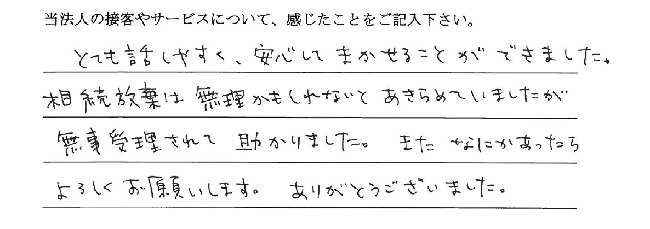 当法人の接客やサービスについて、感じたことをご記入下さい。
とても話しやすく、安心してまかせることができました。
相続放棄は無理かもしれないとあきらめていましたが
無事受理されて助かりました。またなにかあったら
よろしくお願いします。ありがとうございました。